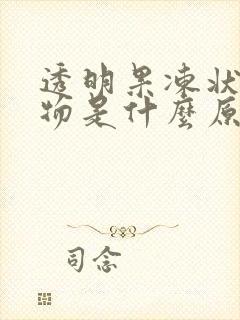 透明果凍狀
物是什麼原
司念